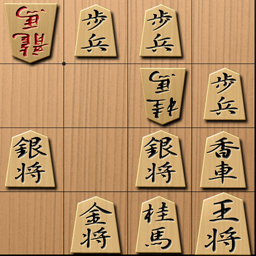 龍馬 歩兵 歩兵
桂馬 歩兵
銀将 銀将 香車
金将 桂馬 王将